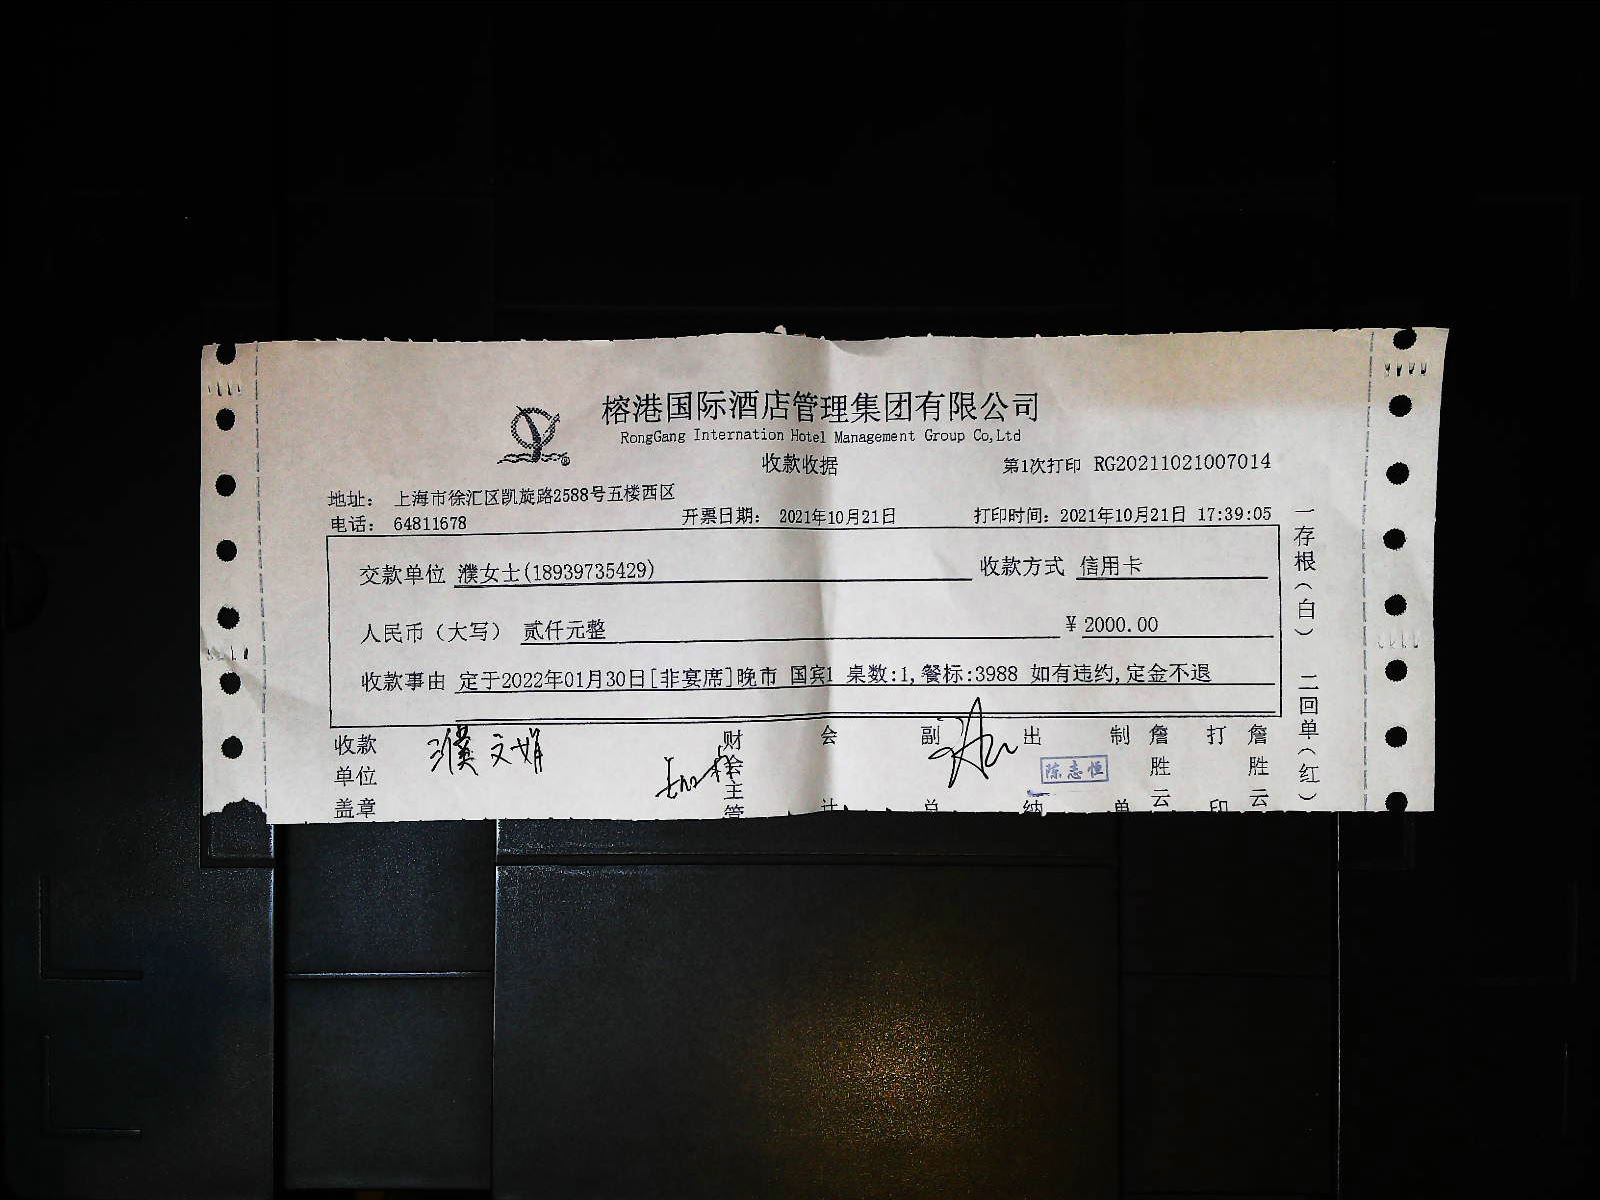 榕港国际酒店管理集团有限公司
RongGang Internation Hotel Management Group Co,Ltd
收款收据
第1次打印 RG20211021007014
地址： 上海市徐汇区凯旋路2588号五楼西区
电话： 64811678 开票日期： 2021年10月21日 打印时间：2021年10月21日 17:39:05
交款单位 濮女士(18939735429) 收款方式 信用卡
人民币（大写） 贰仟元整 ¥2000.00
收款事由 定于2022年01月30日[非宴席]晚市 国宾1 桌数:1,餐标:3988 如有违约,定金不退
收款单位盖章
濮文娟
财会主管
会计
副总
出纳
陈志恒
制单
詹胜云
打印
詹胜云
一存根（白） 二回单（红）